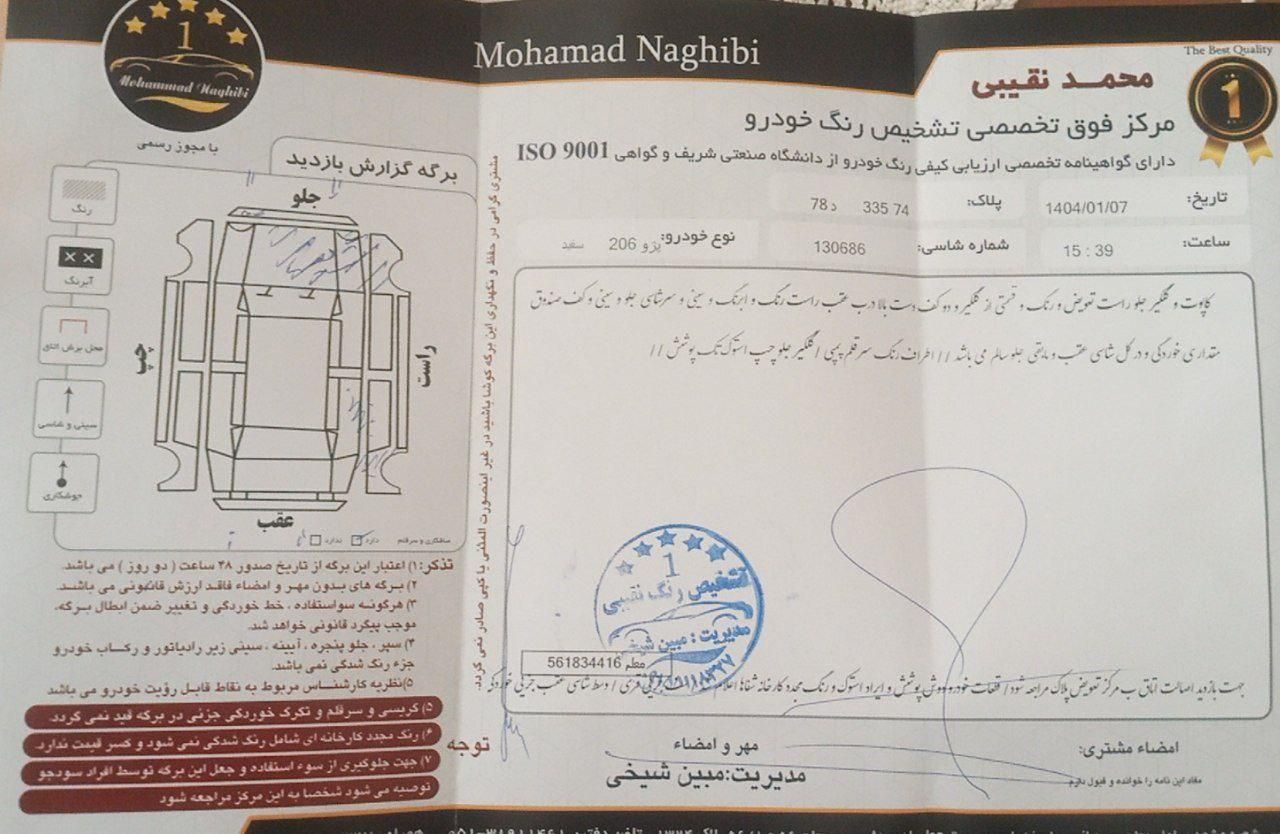 Mohamad Naghibi
The Best Quality
1
محمد نقیبی
مرکز فوق تخصصی تشخیص رنگ خودرو
دارای گواهینامه تخصصی ارزیابی کیفی رنگ خودرو از دانشگاه صنعتی شریف و گواهی ISO 9001
تاریخ: 1404/01/07
پلاک: 74 335 د 78
ساعت: 15 : 39
شماره شاسی: 130686
نوع خودرو: پژو 206 سفید
کاپوت و گلگیر جلو راست تعویض و رنگ و قسمتی از گلگیر و دو کف دست بالا درب عقب راست رنگ و ابرنگ و سینی و سرشاسی جلو و سینی و کف صندوق
مقداری خوردگی و در کل شاسی عقب و مابقی جلو سالم می باشد // اطراف رنگ سرقلم پمپی / گلگیر جلو چپ استوک تک پوشش //
1
تشخیص رنگ نقیبی
مدیریت: مبین شیخی
معلم 561834416
جهت بازدید اصالت اتاق ب مرکز تعویض پلاک مراجعه شود/ قطعات خودرو دوش پوشش و ایراد استوک و رنگ مجدد کارخانه شفاها اعلام / وسط شاسی عقب جزئی خوردگی
امضاء مشتری:
مفاد این نامه را خوانده و قبول دارم
مهر و امضاء
مدیریت: مبین شیخی
مشتری گرامی در حفظ و نگهداری این برگه کوشا باشید در غیر اینصورت المثنی یا کپی صادر نمی گردد.
1
Mohammad Naghibi
با مجوز رسمی
برگه گزارش بازدید
رنگ
آبرنگ
محل برش اتاق
سینی و شاسی
جوشکاری
جلو
چپ
راست
عقب
صافکاری و سرقلم دارد ندارد
تذکر: ۱) اعتبار این برگه از تاریخ صدور ۴۸ ساعت ( دو روز ) می باشد.
۲) برگه های بدون مهر و امضاء فاقد ارزش قانونی می باشد.
۳) هرگونه سواستفاده ، خط خوردگی و تغییر ضمن ابطال برگه،
موجب پیگرد قانونی خواهد شد.
۴) سپر ، جلو پنجره ، آیینه ، سینی زیر رادیاتور و رکاب خودرو
جزء رنگ شدگی نمی باشد.
۵) نظریه کارشناس مربوط به نقاط قابل رؤیت خودرو می باشد
توجه
۵) گریسی و سرقلم و تکرک خوردگی جزئی در برگه قید نمی گردد.
۶) رنگ مجدد کارخانه ای شامل رنگ شدگی نمی شود و کسر قیمت ندارد.
۷) جهت جلوگیری از سوء استفاده و جعل این برگه توسط افراد سودجو
توصیه می شود شخصا به این مرکز مراجعه شود